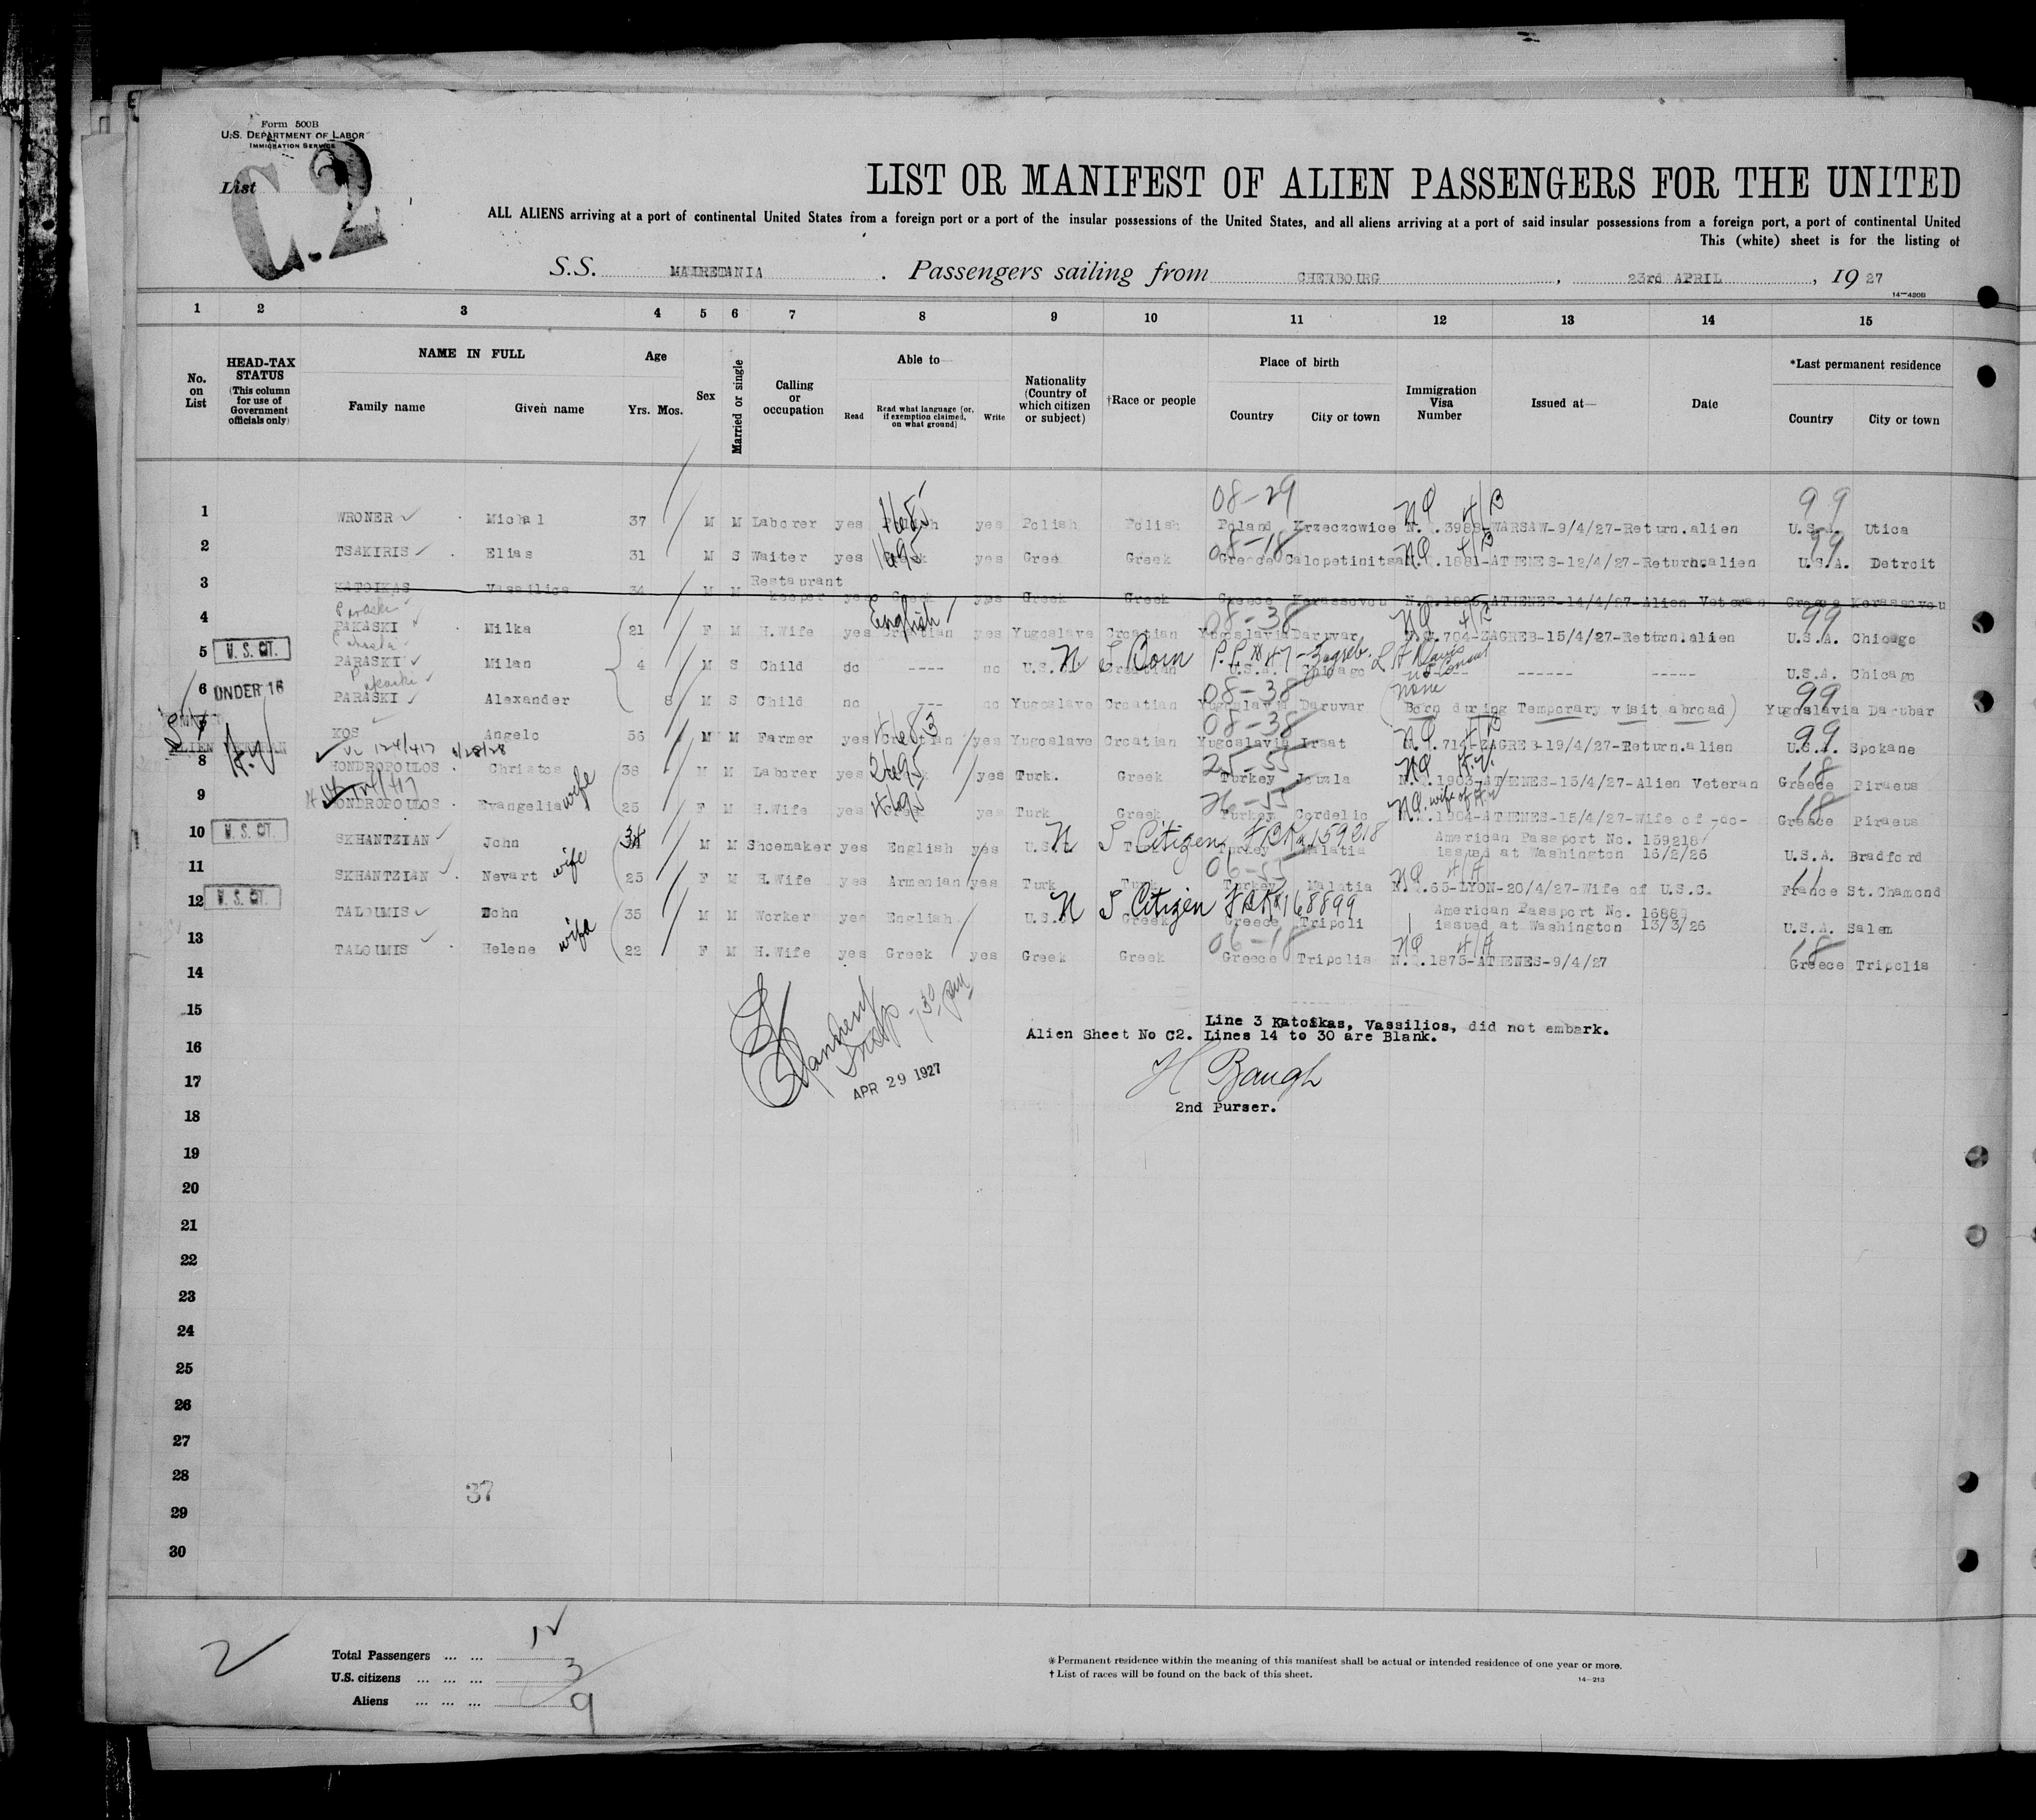 Form 500B
U.S. DEPARTMENT OF LABOR
IMMIGRATION SERVICE
List
C.2
LIST OR MANIFEST OF ALIEN PASSENGERS FOR THE UNITED
ALL ALIENS arriving at a port of continental United States from a foreign port or a port of the insular possessions of the United States, and all aliens arriving at a port of said insular possessions from a foreign port, a port of continental United
This (white) sheet is for the listing of
S.S. MAURETANIA . Passengers sailing from CHERBOURG , 23rd APRIL , 19 27
14—420B
1 2 3 4 5 6 7 8 9 10 11 12 13 14 15
No. on List
HEAD-TAX STATUS (This column for use of Government officials only)
NAME IN FULL
Family name Given name
Age
Yrs. Mos.
Sex
Married or single
Calling or occupation
Able to—
Read
Read what language [or, if exemption claimed, on what ground]
Write
Nationality (Country of which citizen or subject)
†Race or people
Place of birth
Country City or town
Immigration Visa Number
Issued at—
Date
*Last permanent residence
Country City or town
08-29 NQ 4/B 99
1 WRONER Michal 37 M M Laborer yes yes Polish Polish Poland Krzeczowice N.Q.3988-WARSAW-9/4/27-Return.alien U.S.A. Utica
08-18 NQ 4/B 99
2 TSAKIRIS Elias 31 M S Waiter yes yes Gree Greek Greece Calopetinitsa N.Q.1881-ATHENES-12/4/27-Return.alien U.S.A. Detroit
3 KATOIKAS Vassilios 34 M M Restaurant keeper yes Greek yes Greek Greek Greece Kerassovou ATHENES-14/4/27-Alien Veteran Greece Kerassovou
Paraski English 08-38 NQ 4/B 99
4 PAKASKI Milka 21 F M H.Wife yes Croatian yes Yugoslave Croatian Yugoslavia Daruvar N.Q.704-ZAGREB-15/4/27-Return.alien U.S.A. Chicago
5 U. S. CIT. PARASKI Milan 4 M S Child do ---- no U.S. Croatian U.S.A. Chicago ------ ----- U.S.A. Chicago
Born P.P. # 47 - Zagreb
08-38 None 99
6 UNDER 16 PARASKI Alexander 8 M S Child no --- no Yugoslave Croatian Yugoslavia Daruvar (Born during Temporary visit abroad) Yugoslavia Darubar
08-38 NQ 4/B 99
7 KOS Angelo 56 M M Farmer yes Croatian yes Yugoslave Croatian Yugoslavia N.Q.714-ZAGREB-19/4/27-Return.alien U.S.A. Spokane
ALIEN
124/417 4/28/28 25-55 NQ 18
8 HONDROPOULOS Christos 38 M M Laborer yes yes Turk. Greek Turkey N.Q.1903-ATHENES-15/4/27-Alien Veteran Greece Piraeus
26-55 NQ wife of 18
9 HONDROPOULOS Evangelia wife 25 F M H.Wife yes yes Turk Greek Turkey Cordelio N.Q.1904-ATHENES-15/4/27-Wife of -do- Greece Piraeus
10 U. S. CIT. SKHANTZIAN John M M Shoemaker yes English yes U.S. Turkey Malatia American Passport No. 159218 issued at Washington 15/2/26 U.S.A. Bradford
Citizen 159218
06-55 NQ 4/A 11
11 SKHANTZIAN Nevart wife 25 F M H.Wife yes Armenian yes Turk Turkey Malatia N.Q.65-LYON-20/4/27-Wife of U.S.C. France St.Chamond
12 U. S. CIT. TALOUMIS John 35 M M Worker yes English U.S. Greek Greece Tripoli American Passport No. 16889 issued at Washington 13/3/26 U.S.A. Salem
Citizen 168899
06-18 NQ 4/A 18
13 TALOUMIS Helene wife 22 F M H.Wife yes Greek yes Greek Greek Greece Tripolis N.Q.1875-ATHENES-9/4/27 Greece Tripolis
14
15
Line 3 Katoikas, Vassilios, did not embark.
Alien Sheet No C2. Lines 14 to 30 are Blank.
16
H Baugh
17
APR 29 1927
2nd Purser.
18
19
20
21
22
23
24
25
26
27
28
37
29
30
2
Total Passengers ... ... 12
U.S. citizens ... ... ... 3
Aliens ... ... ... 9
*Permanent residence within the meaning of this manifest shall be actual or intended residence of one year or more.
†List of races will be found on the back of this sheet.
14—213